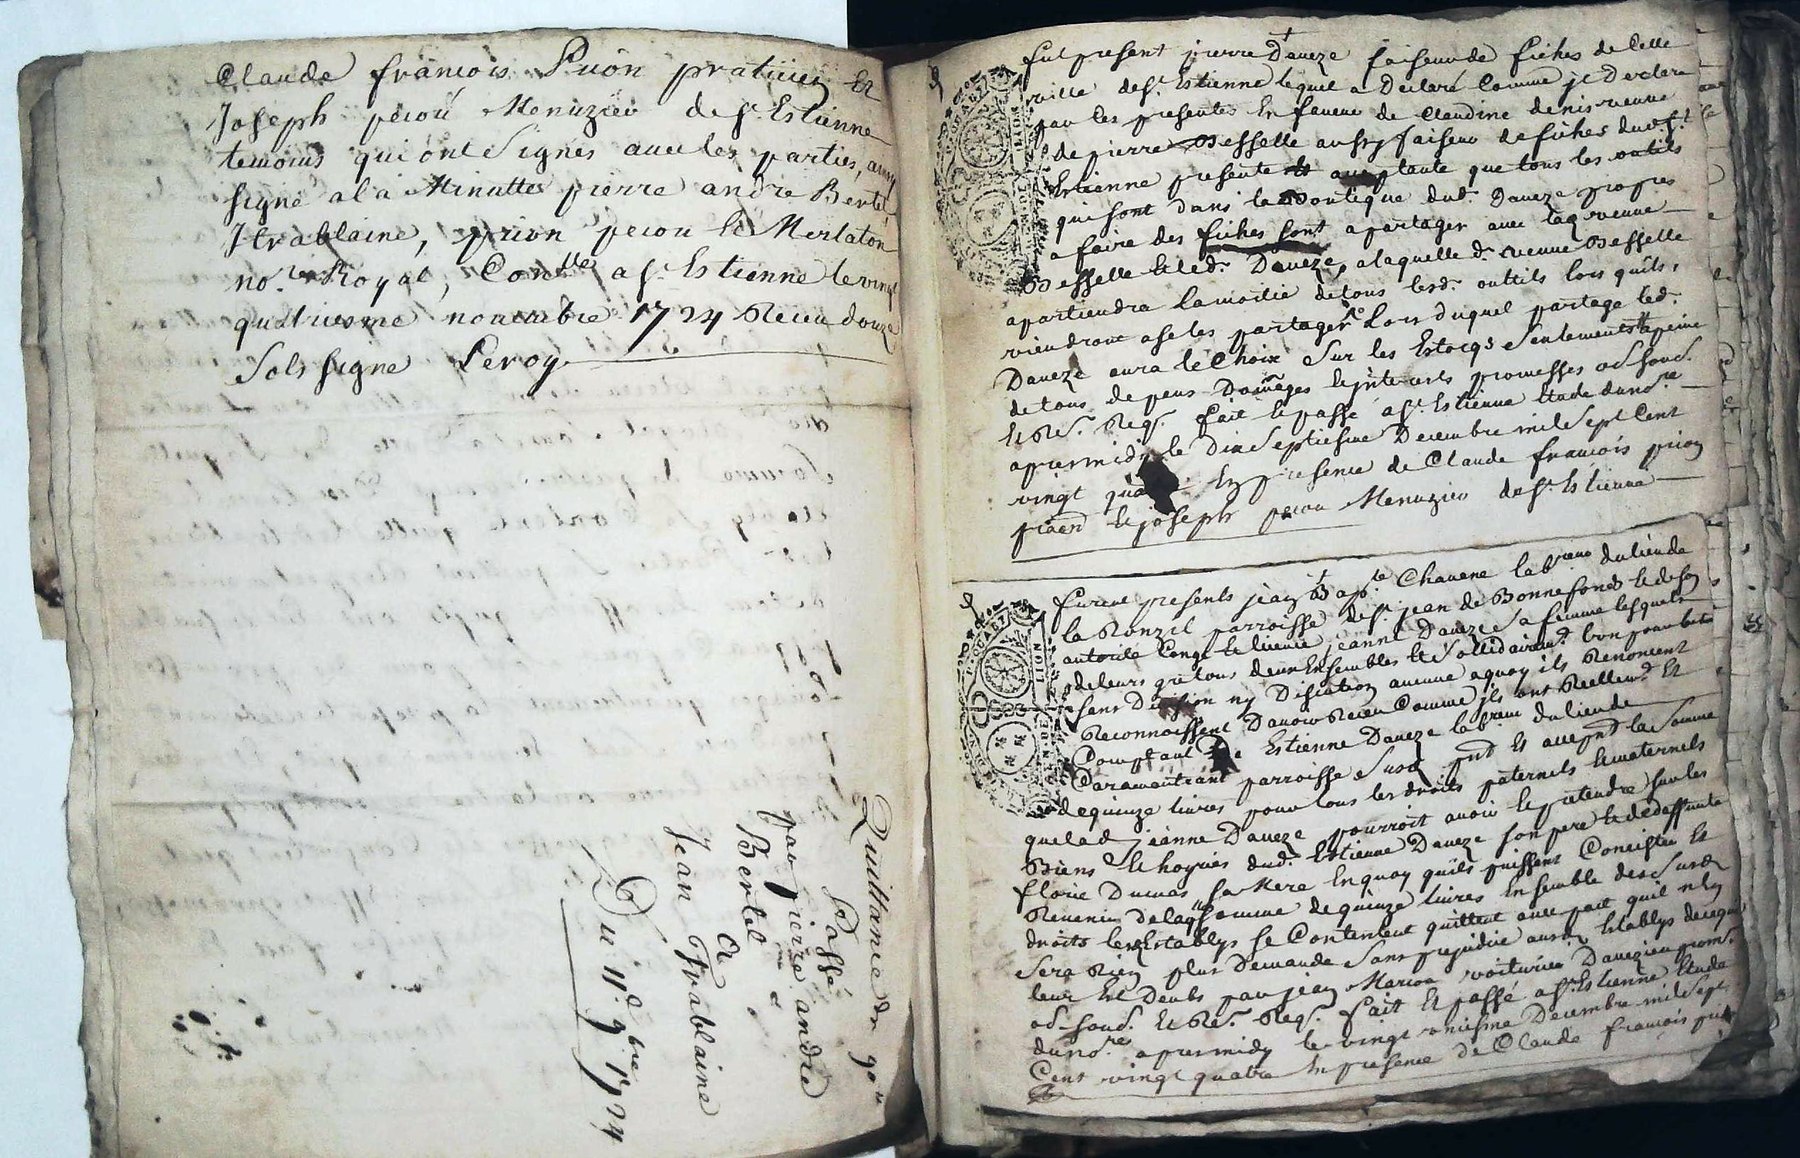 Claude françois Prion praticien et
Joseph picon Menuzier de St. Estienne
temoins qui ont signés avec les parties, ainsy
signé a la Minutte pierre andré Bertel,
J frablaine, prion picon & Merlaton
nore. Royal, Conllé a St. Estienne le vingt
quatriesme novembre 1724 Receu douze
sols signe Leroy.
Quittance de 90 ll
Passé
par pierre andré
Bertel
a
Jean Frablaine
Du 11e 9bre 1724
fut present pierre Daveze faiseur de fiches de cette
ville de St. Estienne lequel a Declaré Comme je Declare
par les presentes En faveur de Claudine denis veuve
de pierre Besselle aussy faiseur de fiches dud. St.
Estienne presente et acceptante que tous les outils
qui sont dans la Boutique dud. Daveze propres
a faire des fiches sont a partager avec lad. veuve
Besselle et led. Daveze, a laquelle d. veuve Besselle
apartiendra la moitié de tous lesd. outtils lors quils
viendront a se les partager Lors duquel partage led.
Daveze aura le Choix sur les Estocqs seulement a peine
de tous depens Domages et interests promesses ob. soud.
et Re. Reqs. fait et passé a St. Estienne Etude du nore.
apres midy le Dix septiesme Decembre mil sept Cent
vingt qua En presence de Claude françois prion
pratn et joseph picon Menuzier de St. Estienne
furent presents jean Bapte. Chavane labreur du lieu de
la Ronzil parroisse de St. jean de Bonnefonds et de son
autorité Congé et licence jeanne Daveze sa femme lesquels
de leurs gré tous deux Ensembles et sollidairemt. l'un pour l'autre
sans Division ny Discution aucune a quoy ils Renoncent
Reconnoissent D'avoir Receu Comme ils ont Reellemt. et
Comptant De Estienne Daveze labreur du lieu de
parroisse susd. pnt et accept. la somme
de quinze livres pour tous les droits paternels et maternels
que lad. jeanne Daveze pourroit avoir et pretendre sur les
Biens et hoyries dud. Estienne Daveze son pere et de deffunte
florie Dumas sa Mere En quoy quils puissent Concister et
Revenir de laq. somme de quinze livres Ensemble des susd.
droits les Establys se Contentent quittent avec pact quil n'en
sera Rien plus Demandé sans prejudice auxd. Establys de ce qui
leur est Deub par jean Marcou voiturier
ob. soud. et Re. Reqs. fait et passé a St. Estienne Etude
du nore. apres midy le vingt oniesme Decembre mil sept
Cent vingt quatre En presence de Claude françois prion